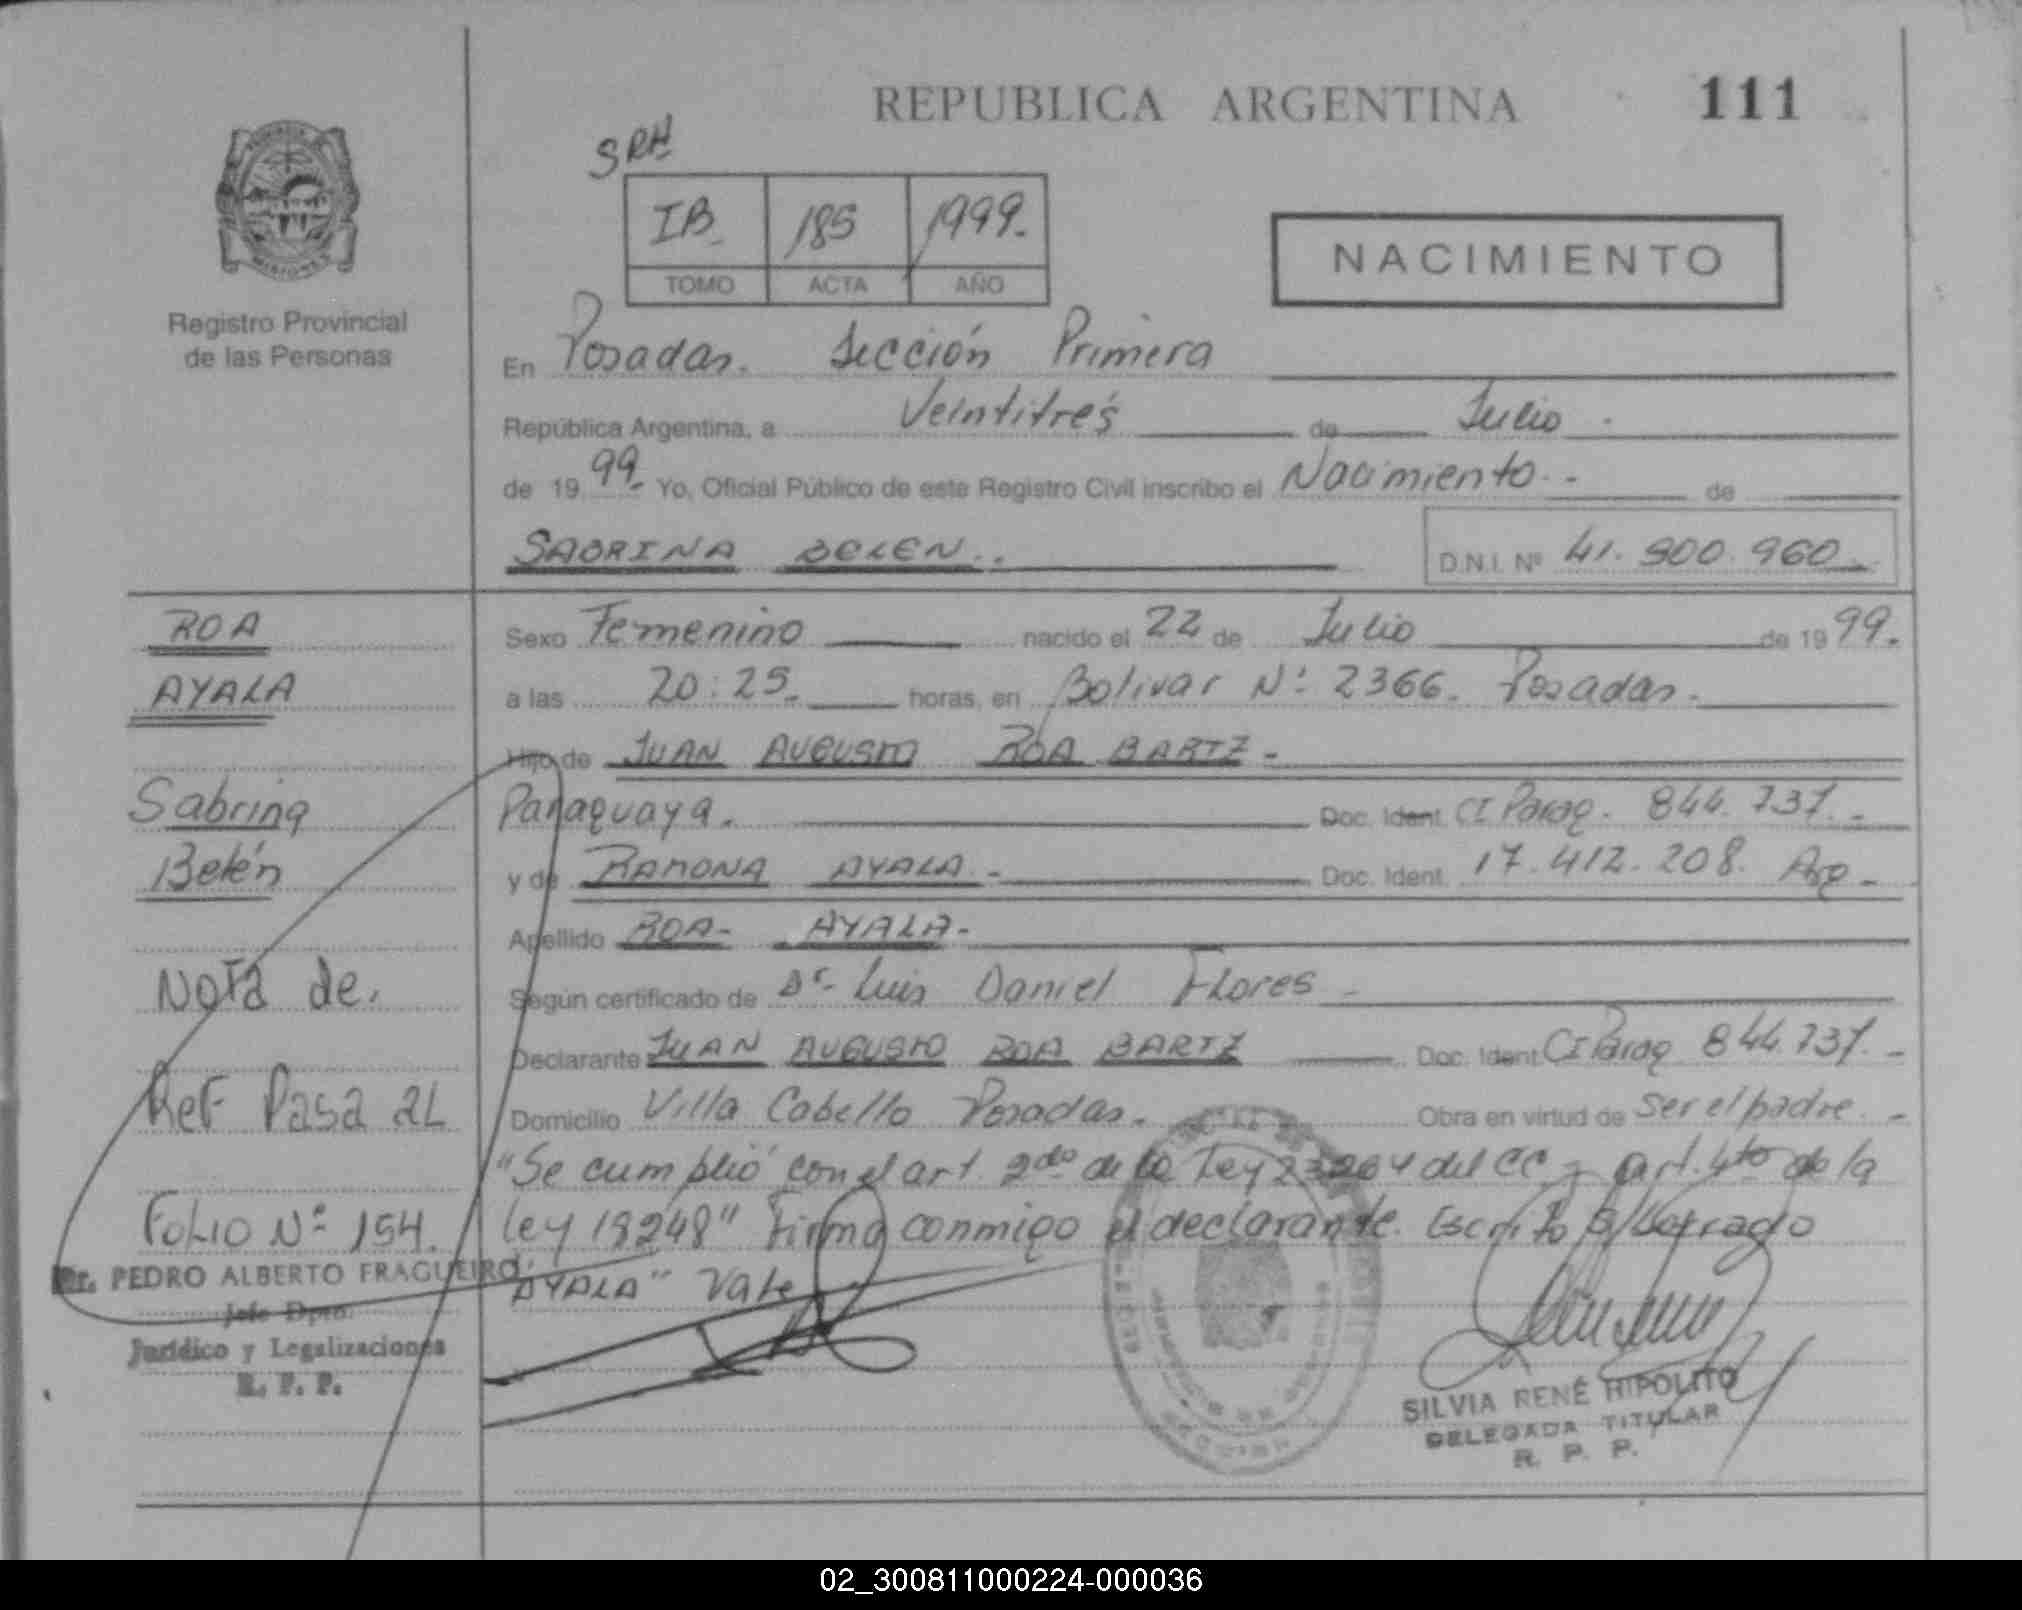 REPUBLICA ARGENTINA 111
SRH
IB 185 1999.
TOMO ACTA AÑO
NACIMIENTO
Registro Provincial
de las Personas
En Posadas. Sección Primera
República Argentina, a Veintitrés de Julio
de 19 99 Yo, Oficial Público de este Registro Civil inscribo el Nacimiento de
SABRINA BELEN. D.N.I. Nº 41.900.960
ROA
AYALA
Sabrina
Belén
Nota de
Ref Pasa al
Folio Nº 154.
Dr. PEDRO ALBERTO FRAGUEIRO
Jefe Dpto.
Jurídico y Legalizaciones
R. P. P.
Sexo Femenino nacido el 22 de Julio de 19 99.
a las 20:25 horas, en Bolivar Nº 2366. Posadas.
Hijo de JUAN AUGUSTO ROA BARTZ -
Paraguaya. Doc. Ident. CI Parag. 844.737.-
y de RAMONA AYALA - Doc. Ident. 17.412.208. Arg -
Apellido ROA - AYALA -
Según certificado de Dr. Luis Daniel Flores -
Declarante JUAN AUGUSTO ROA BARTZ Doc. Ident. CI Parag 844.737.-
Domicilio Villa Cabello Posadas. Obra en virtud de ser el padre.-
"Se cumplió con el art. 2do de la Ley 23264 del CC y art. 4to de la
ley 18248" Firma conmigo el declarante. Escrito s/ borrado
AYALA" Vale
SILVIA RENÉ HIPOLITO
DELEGADA TITULAR
R. P. P.
02_300811000224-000036